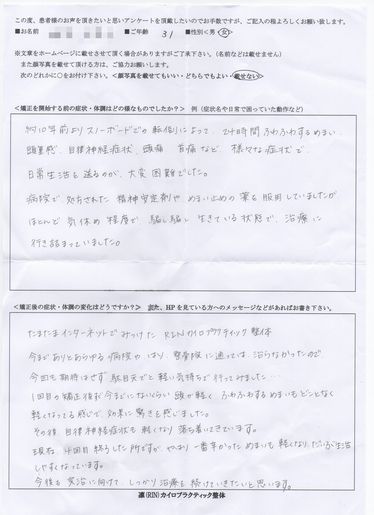 この度、患者様のお声を頂きたいと思いアンケートを頂戴したいのでお手数ですが、ご記入の程よろしくお願い致します。
■お名前 ■ご年齢 31 ■性別<男・女>
※文章をホームページに載せさせて頂く場合がありますがご了承下さい。(名前などは載せません)
また顔写真を載せて頂ける方は、ご協力お願いします。
次のどれかに○をお付け下さい。<顔写真を載せてもいい・どちらでもよい・載せない>
<矯正を開始する前の症状・体調はどの様なものでしたか?> 例(症状名や日常で困っていた動作など)
約10年前よりスノーボードでの転倒によって、24時間ふわふわするめまい、
頭重感、自律神経症状、頭痛 首痛など、様々な症状で、
日常生活を送るのが、大変困難でした。
病院で処方された精神安定剤やめまい止めの薬を服用していましたが
ほとんど気休め程度で、騙し騙し生きている状態で、治療に
行き詰まっていました。
<矯正後の症状・体調の変化はどうですか?> また、HPを見ている方へのメッセージなどがあればお書き下さい。
たまたまインターネットでみつけた RINカイロプラクティック整体
今までありとあらゆる病院やはり、整骨院に通っては、治らなかったので
今回も期待はせず 駄目元でと軽い気持ちで行ってみました…
1回目の矯正後すぐ今までにないくらい頭が軽く ふわふわするめまいもどことなく
軽くなってる感じで効果に驚きを感じました。
その後 自律神経症状も軽くなり 落ち着いてきています。
現在、4回目終了した所ですが、やはり一番辛かっためまいも軽くなり、だいぶ生活
しやすくなっています。
今後も完治に向けて、しっかり治療を続けていきたいと思います。
凛(RIN)カイロプラクティック整体